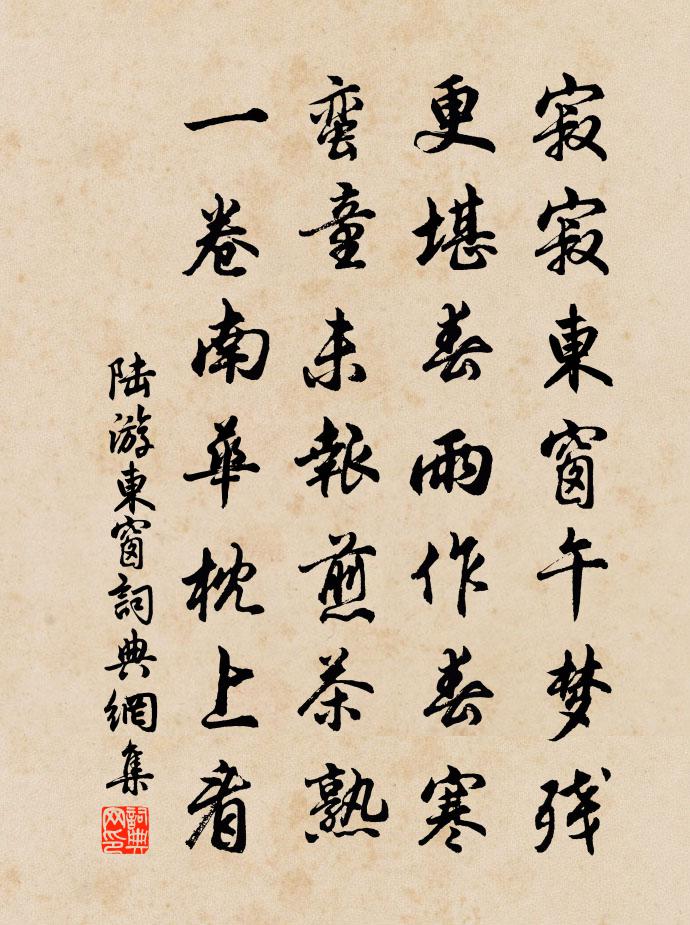 寂寂東窗午梦残
更堪春雨作春寒
蛮童未報煎茶熟
一卷南華枕上看
陆游東窗詞典網集
詞典网印